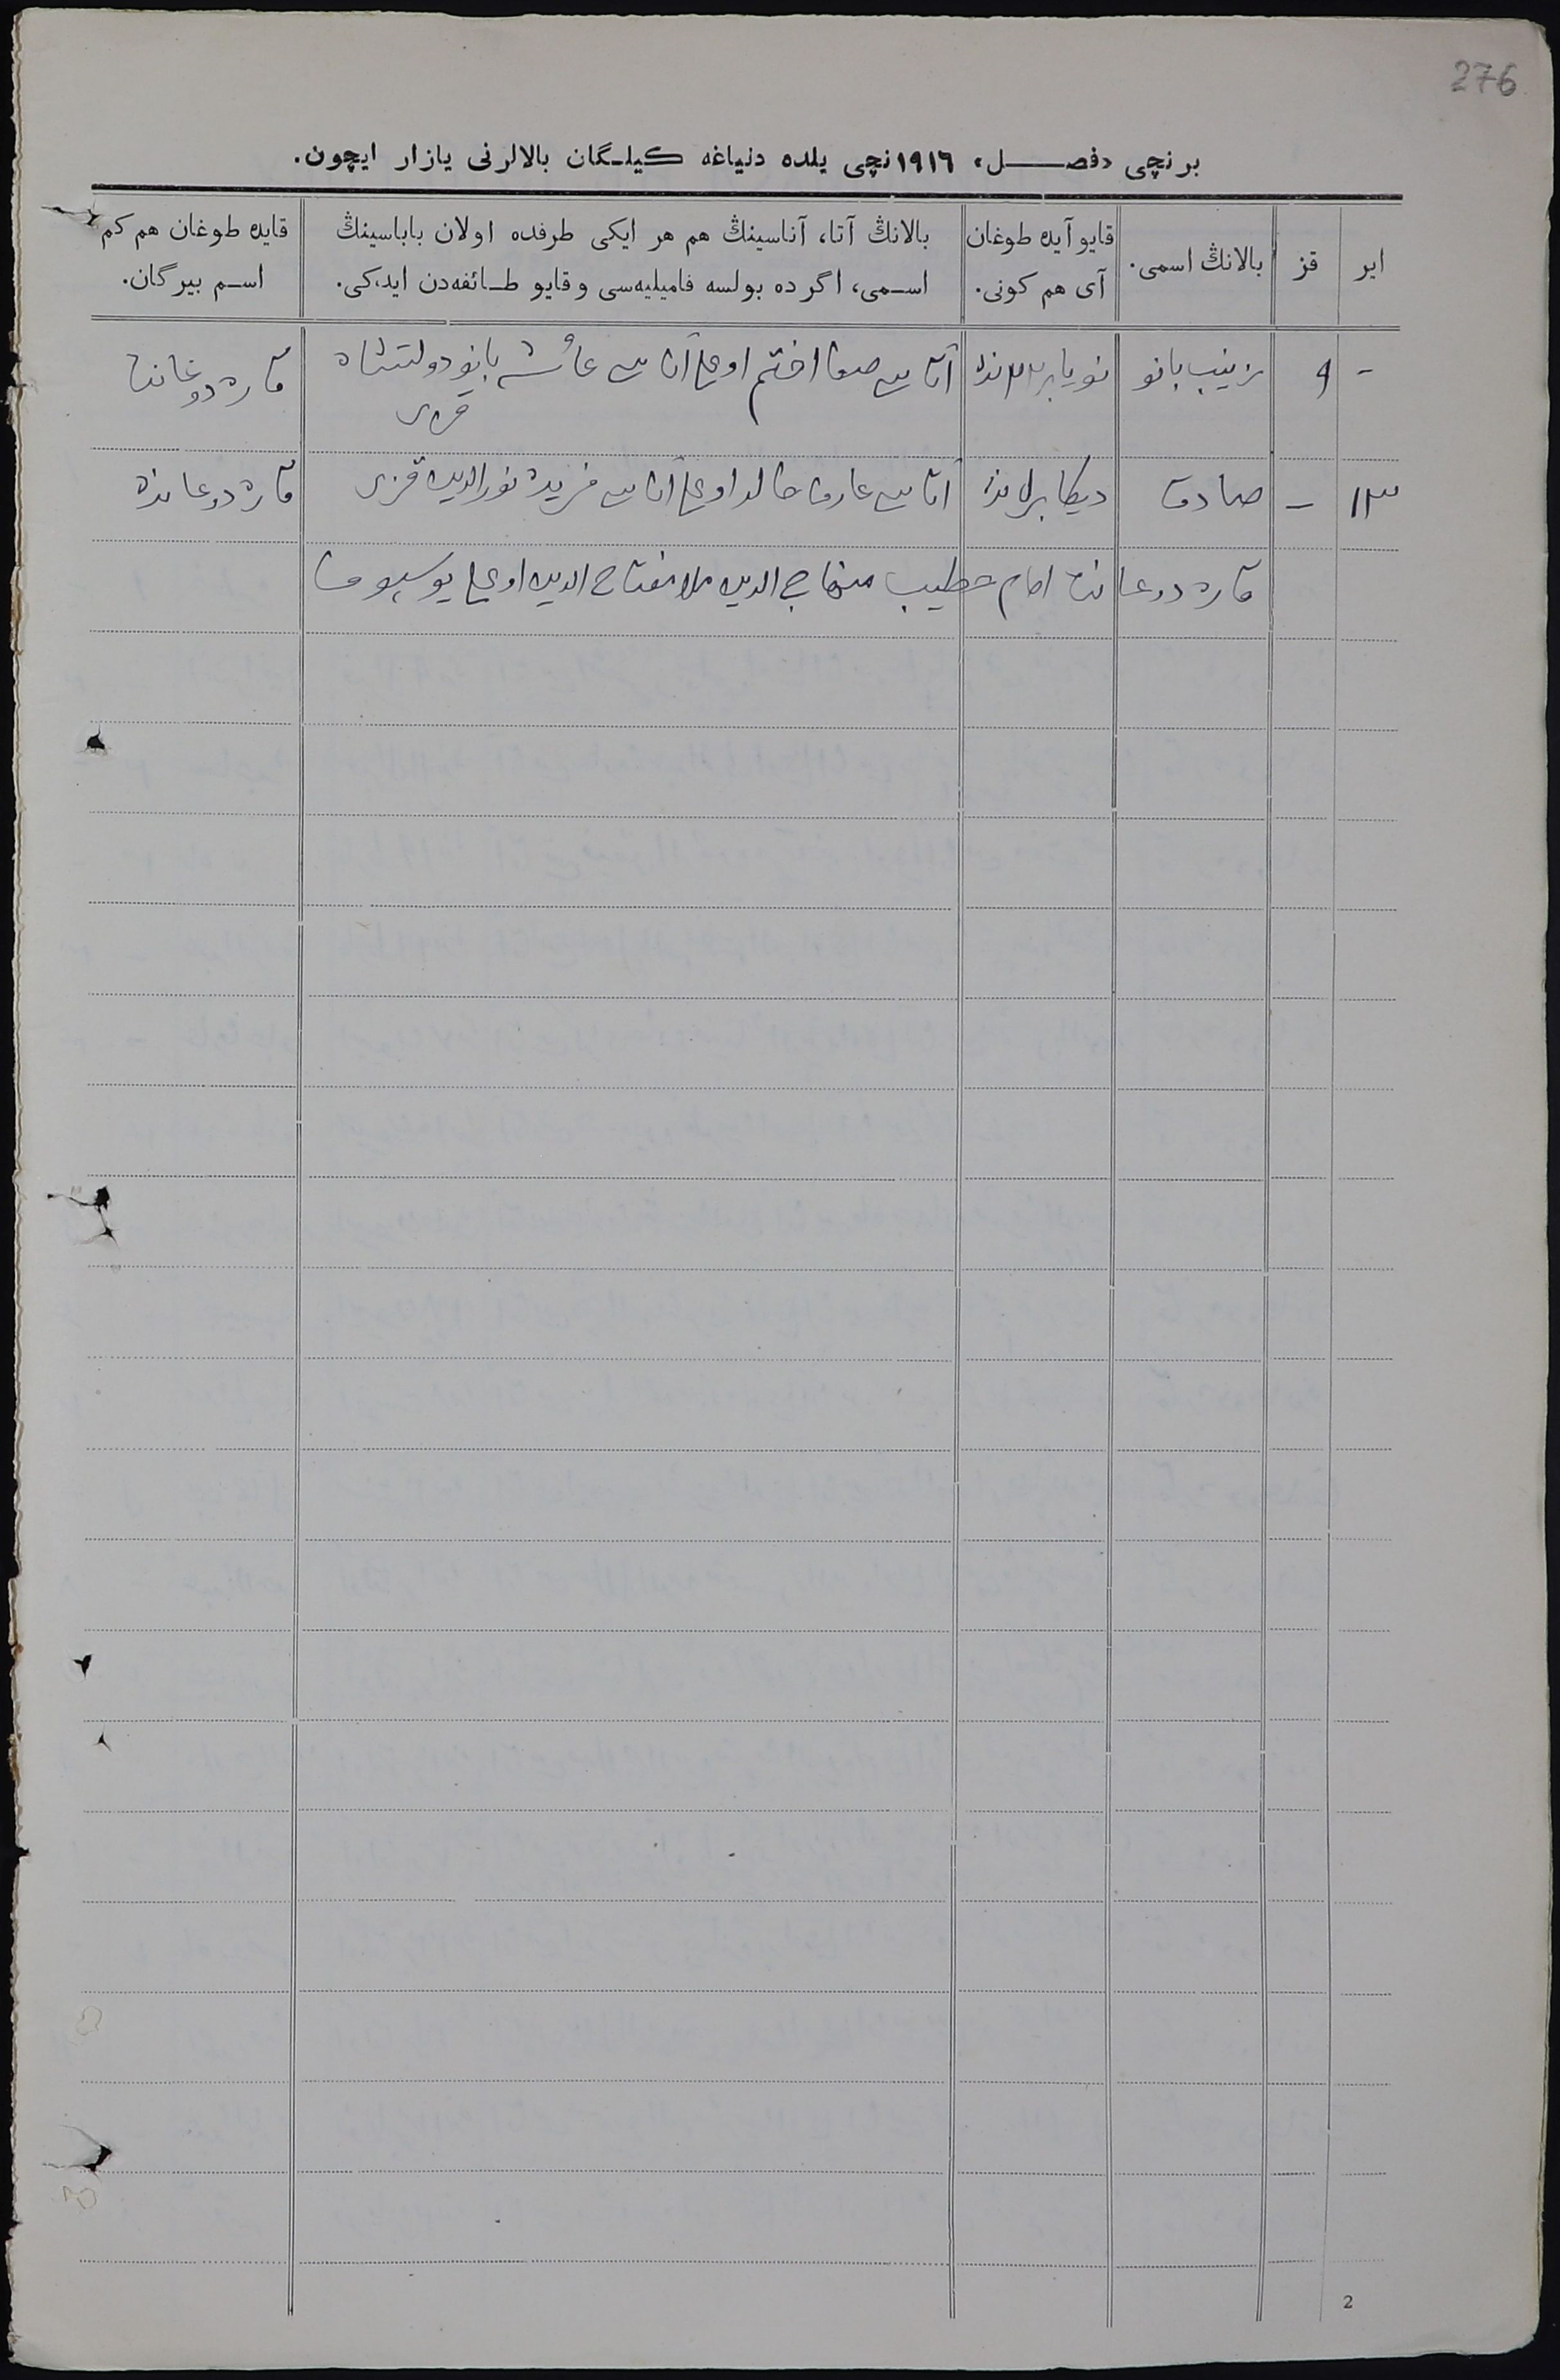 276
برنچی «فصل» ١٩١٦نچی یلده دنیاغه كیلـگان بالالرنی یازار ایچون.
ایر
قز
بالانڭ اسمی.
قایو آیده طوغان
آی هم كونی.
بالانڭ آتا، آناسینڭ هم هر ایكی طرفده اولان باباسینڭ
اسـمی، اگر ده بولسه فامیلیه‌سی و قایو طـائفه‌دن ایدكی.
قایده طوغان هم كم
اسـم بیرگان.
-
٩
زینب بانو
نویابر ٢٢نده
آتاسی اختم اوغلی آناسی عائشه بانو دولتشاه
قزی
قاره دوغاندا
١٣
–
صادق
دیكابر نده
آتاسی عارف خالد اوغلی آناسی فریده نورالدین قزی
قاره دوغانده
قاره دوغاندا امام خطیب منهاج الدین ملا مفتاح الدین اوغلی یوسپوف
2